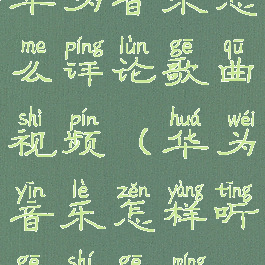 me píng lùn gē qū
么评论歌曲
shì pín huá wéi
视频（华为
yīn lè zěn yàng tīng
音乐怎样听